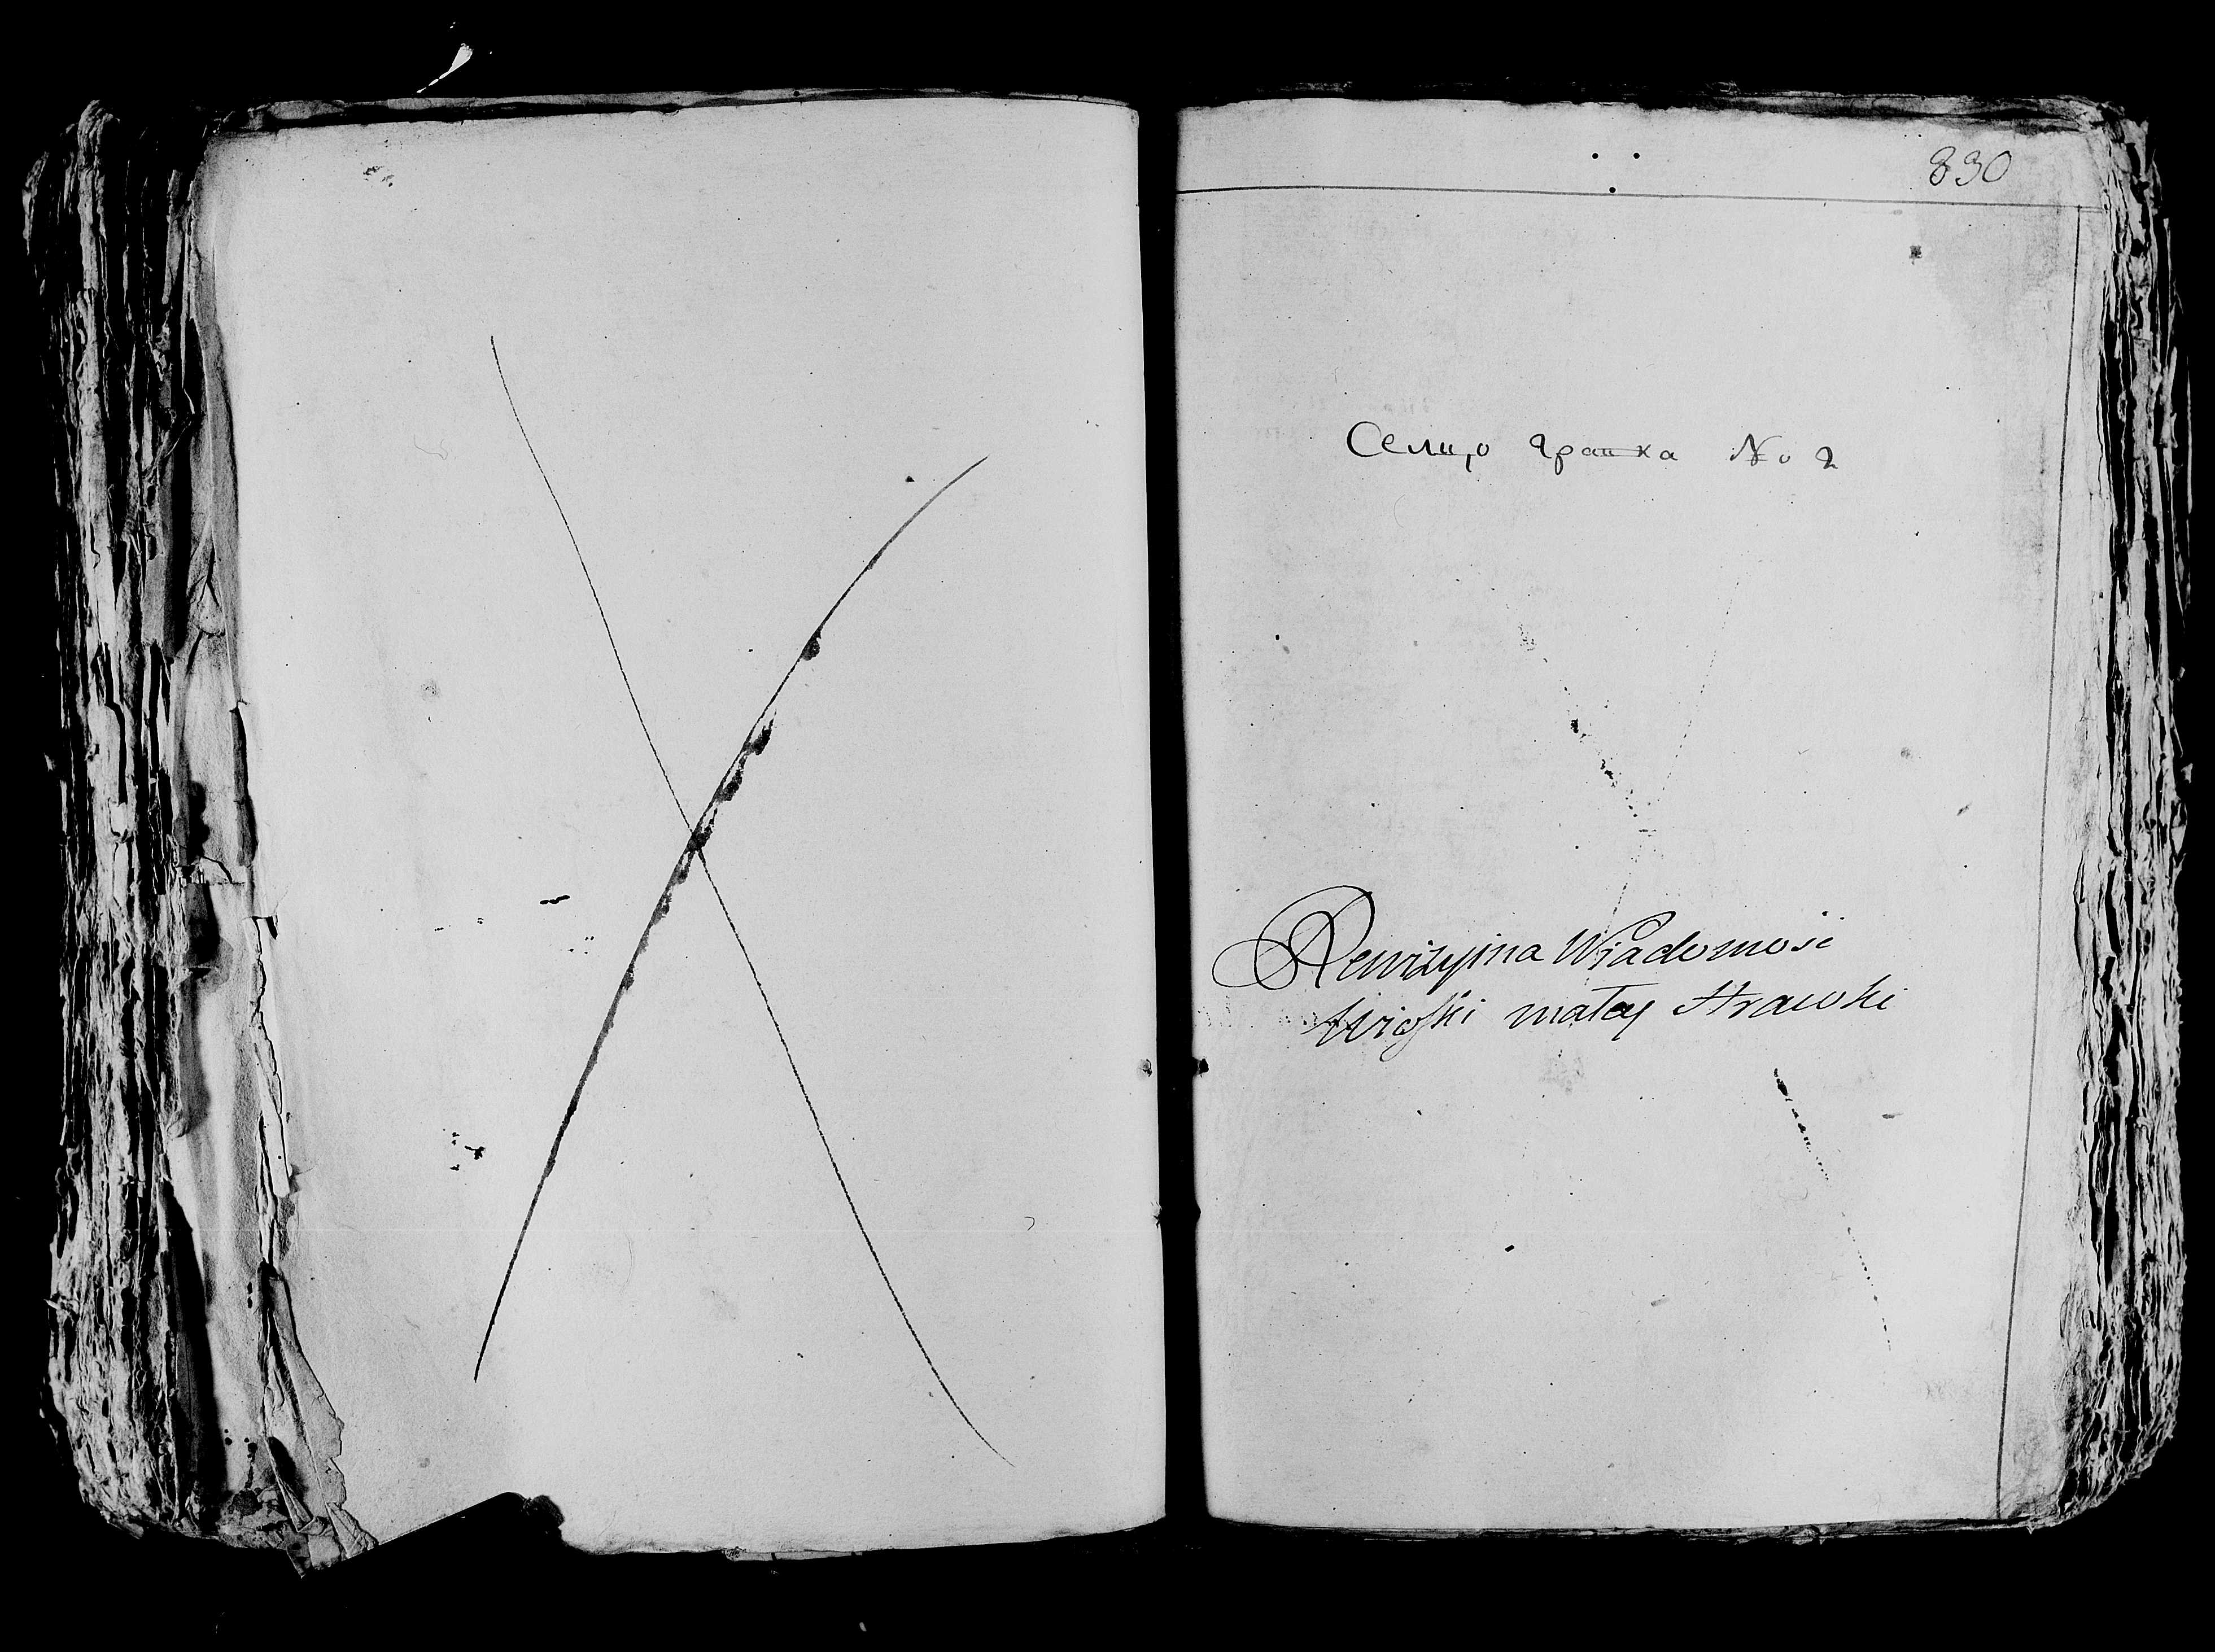 830
Селцо гравка No 2
Rewizyjna Wiadomość
Wioski małey Hrawki